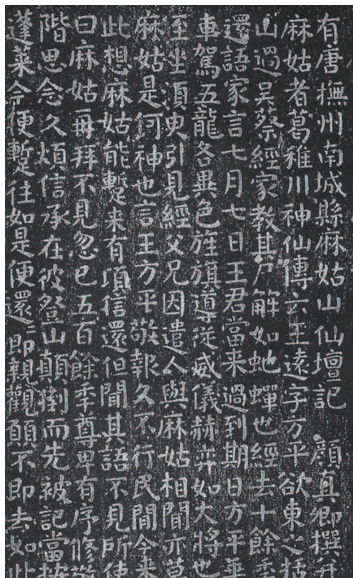 有唐撫州南城縣麻姑山仙壇記 顏真卿撰并
麻姑者葛稚川神仙傳云王遠字方平欲東之括
山過吳蔡經家教其尸解如虵蟬也經去十餘季
還語家言七月七日王君當来過到期日方平乘
車駕五龍各異色旌旗導從威儀赫弈如大將也
至坐須臾引見經父兄因遣人與麻姑相聞亦莫
麻姑是何神也言王方平敬報久不行民間今来
此想麻姑能蹔来有頃信還但聞其語不見所使
曰麻姑再拜不見忽已五百餘季尊卑有序修敬
階思念久煩信承在彼登山顛倒而先被記當按
蓬萊今便蹔往如是便還還即親觀願不即去如此